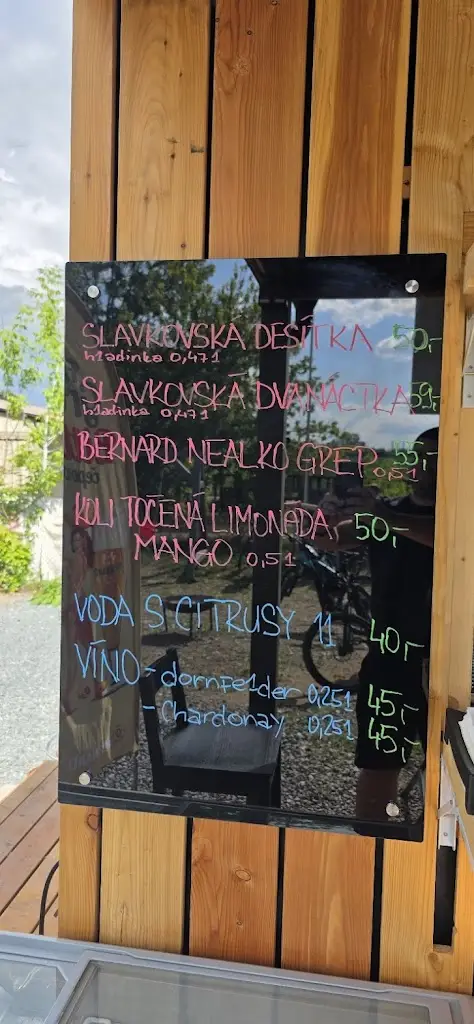 SLAVKOVSKÁ DESÍTKA 50,-
hladinka 0,47l
SLAVKOVSKÁ DVANÁCTKA 59,-
hladinka 0,47l
BERNARD NEALKO GREP 0,5l 55,-
KOLI TOČENÁ LIMONÁDA 50,-
MANGO 0,5l
VODA S CITRUSY 1l 40,-
VÍNO - dornfelder 0,25l 45,-
- Chardonay 0,25l 45,-